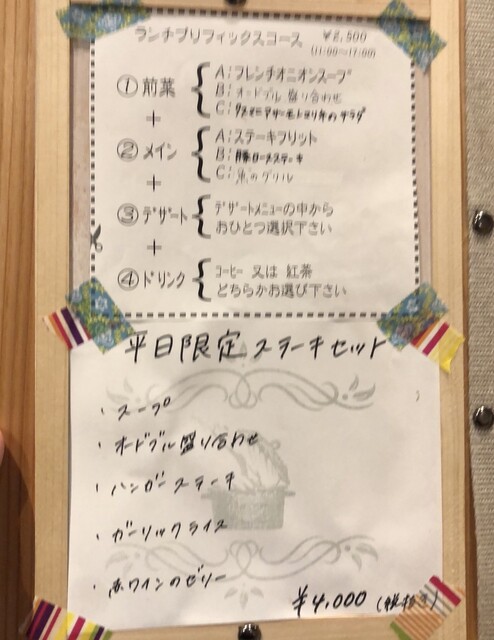 ランチプリフィックスコース ¥2,500
(11:00〜17:00)
① 前菜
A:フレンチオニオンスープ
B:オードブル盛り合わせ
C:
+
② メイン
A:ステーキフリット
B:豚ロースステーキ
C:魚のグリル
+
③ デザート
デザートメニューの中から
おひとつ選択下さい
+
④ ドリンク
コーヒー 又は 紅茶
どちらかお選び下さい
平日限定 ステーキセット
・スープ
・オードブル盛り合わせ
・ハンガーステーキ
・ガーリックライス
・赤ワインのゼリー
¥4,000 (税抜き)